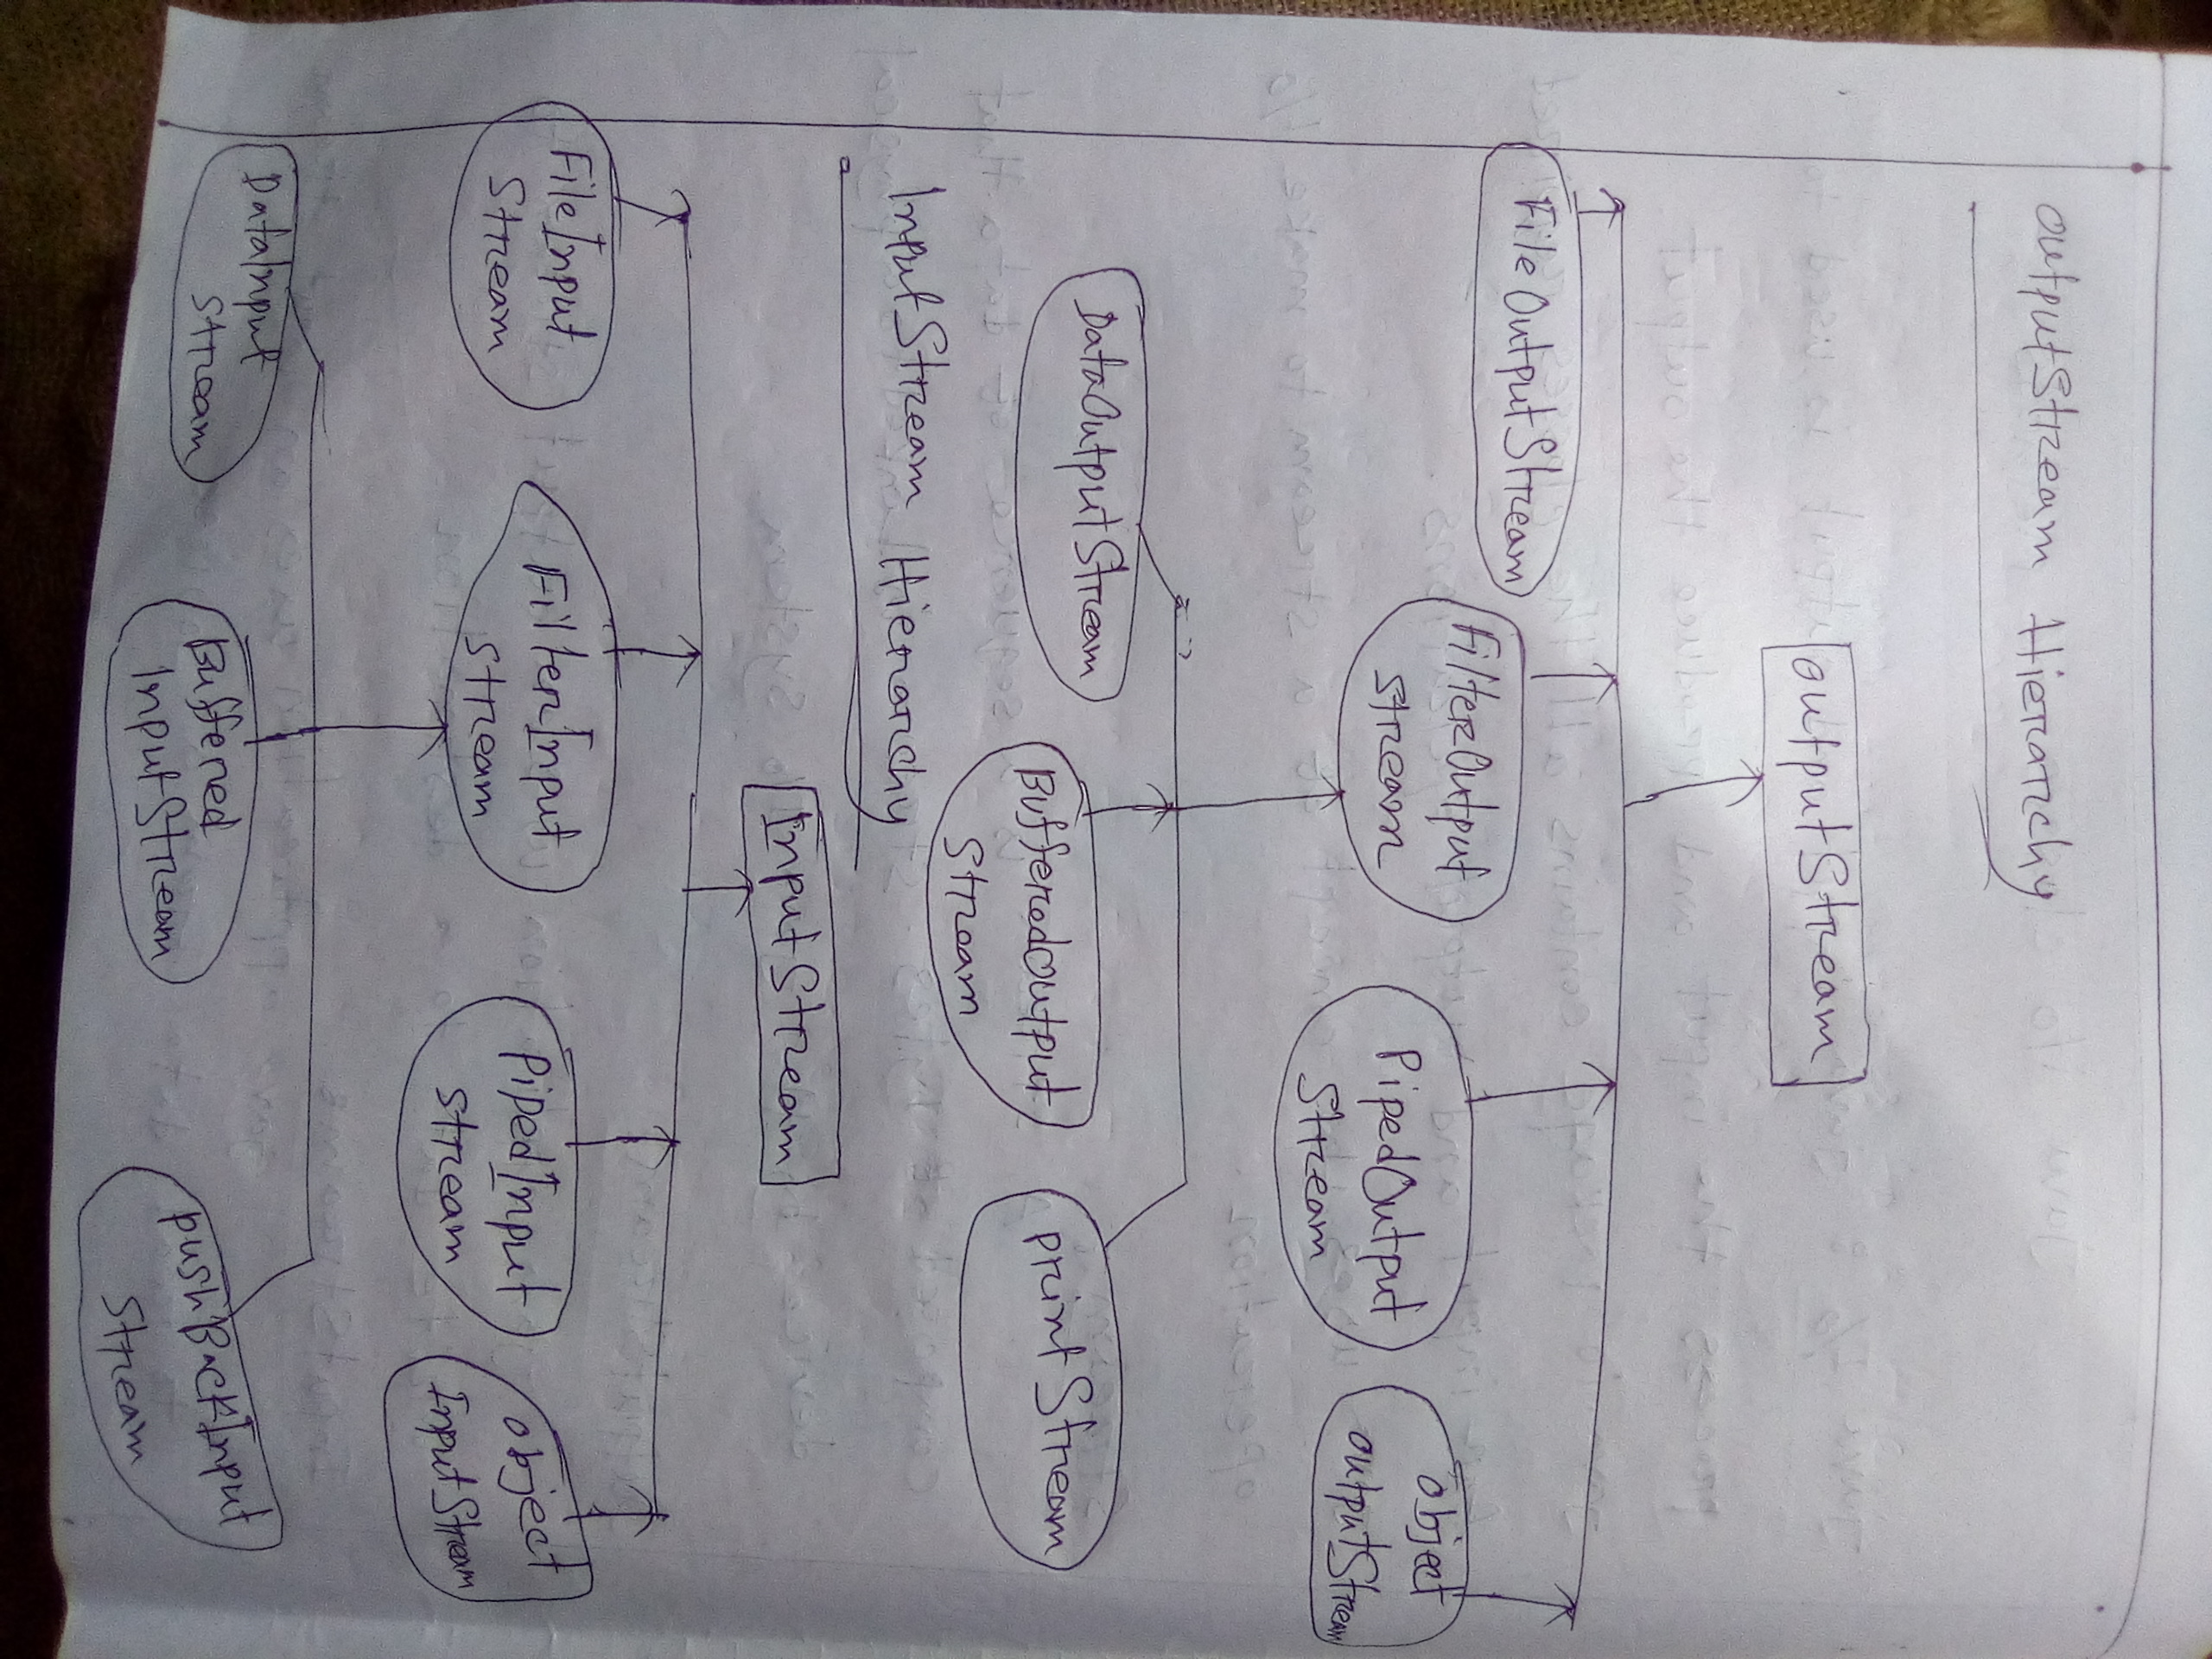 outputStream Hierarchy
outputStream
File OutputStream
FilterOutput
stream
PipedOutput
Stream
object
outputStream
DataOutputStream
BufferedOutput
Stream
printStream
InputStream Hierarchy
InputStream
FileInput
Stream
FilterInput
stream
PipedInput
stream
object
InputStream
DataInput
stream
Buffered
InputStream
pushBackInput
Stream